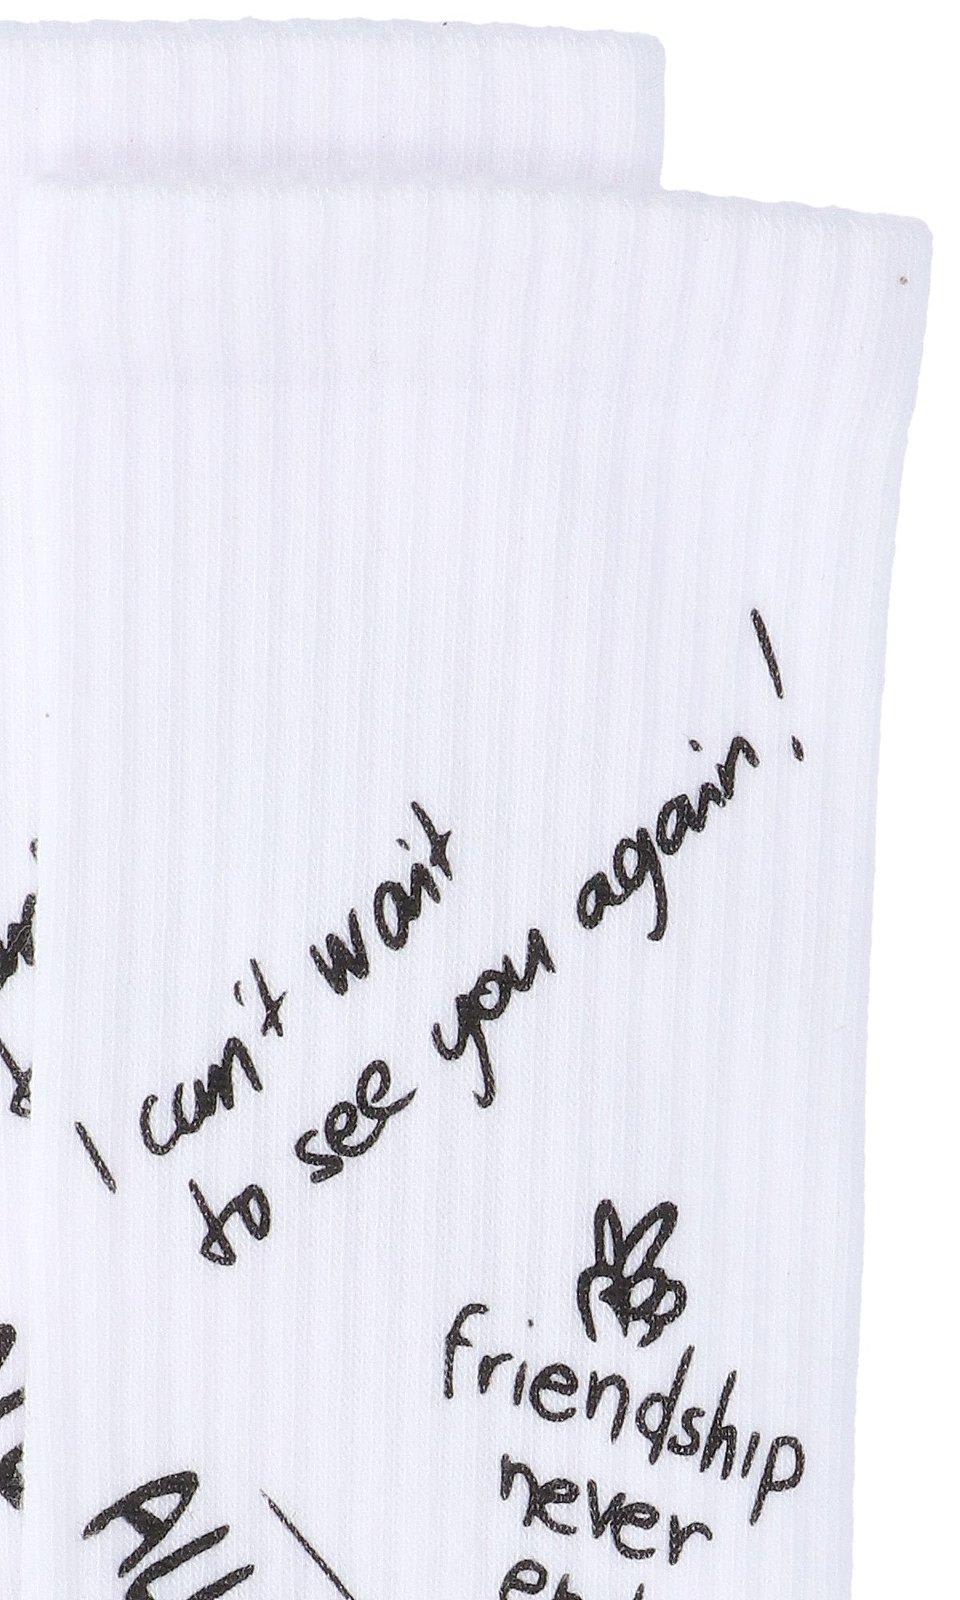 I can't wait
to see you again!
friendship
never